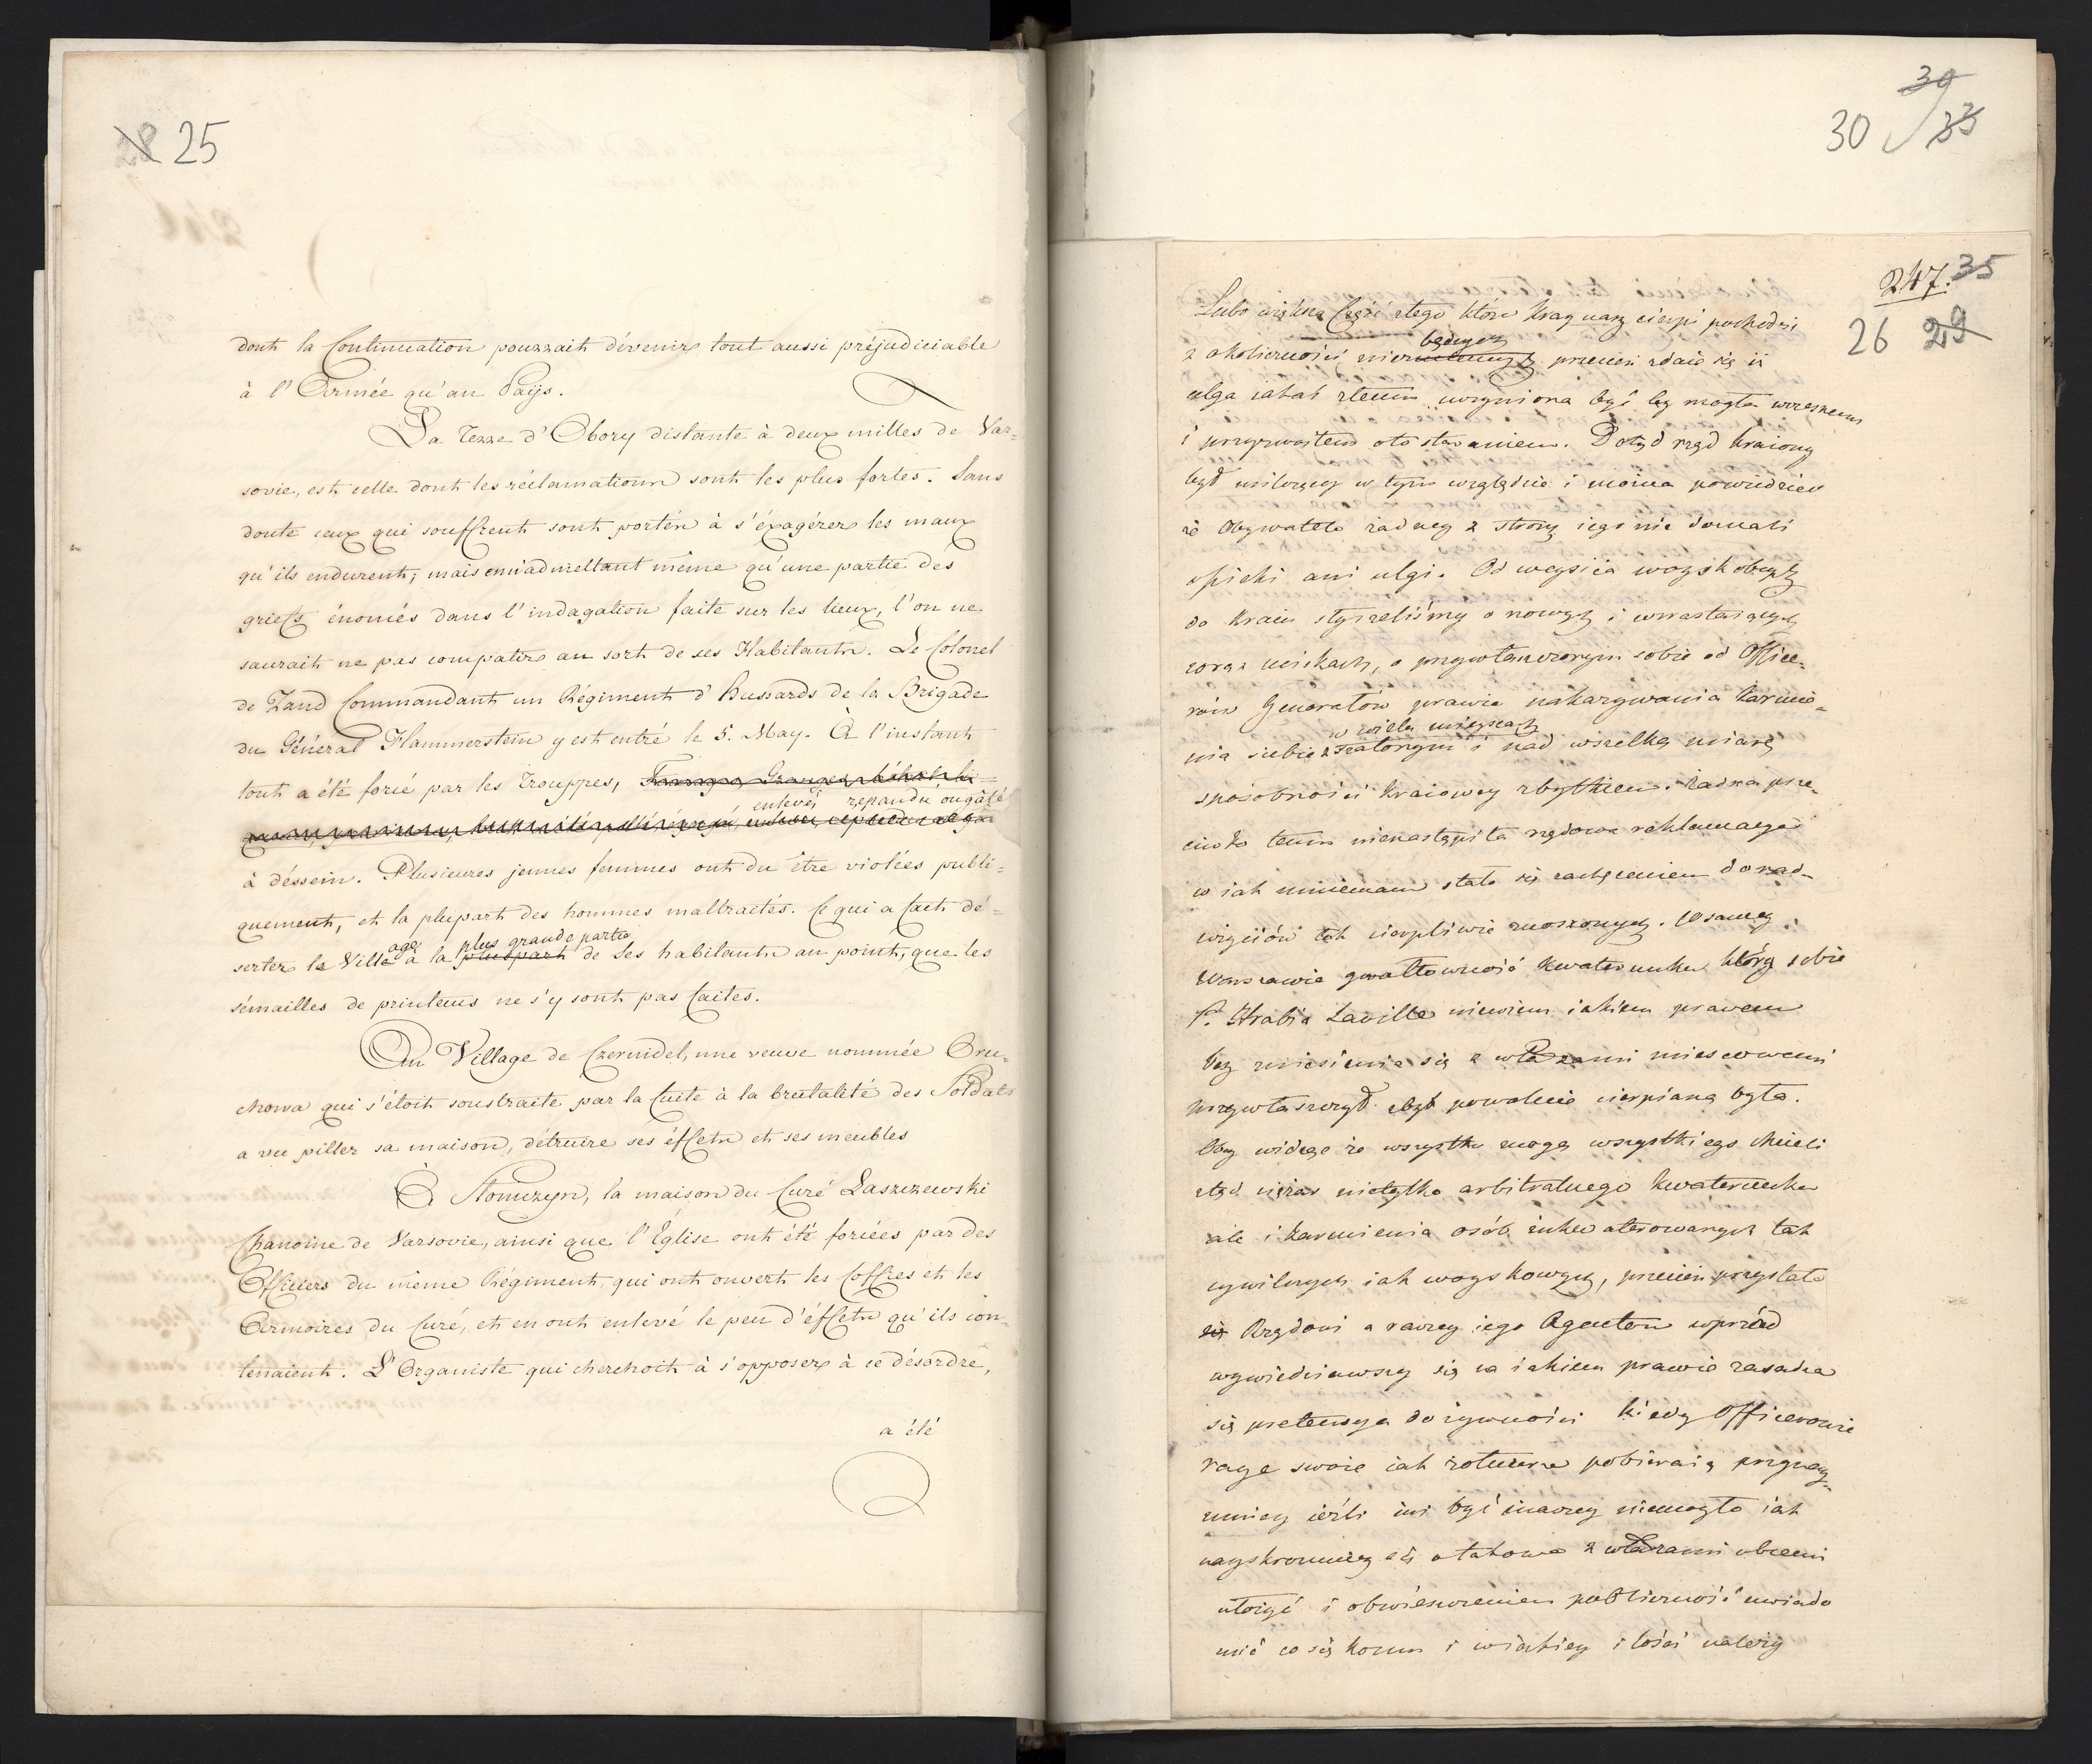 25
dont la Continuation pourrait dévenir tout aussi préjudiciable
à l'Armée qu'au Païs.
La Terre d'Obory distante à deux milles de Var=
sovie, est celle dont les réclamations sont les plus fortes. Sans
doute ceux qui souffrent sont portés à s'éxagérer les maux
qu'ils endurent; mais en admettant même qu'une partie des
griefs énomés dans l'indagation faite sur les lieux, l'on ne
saurait ne pas compatir au sort de ses Habitants. Le Colonel
de Zand Commandant un Régiment d'Hussards de la Brigade
du Général Hammerstein y est entré le 5. May. À l'instant
tout a été forcé par les Trouppes,
enlevé repandu ou gâté
à déssein. Plusieures jeunes femmes ont du être violées publi=
quement, et la plupart des hommes maltraités. Ce qui a fait dé=
age plus grande partie
serter le Village à la pluspart de ses habitants au point, que les
sémailles de printems ne s'y sont pas faites.
Au Village de Czernidel, une veuve nommée Bru=
chowa qui s'étoit soustraite par la fuite à la brutalité des Soldats
a vu piller sa maison, détruire ses éffets et ses meubles
À Słomczyn, la maison du Curé Laszczewski
Chanoine de Varsovie, ainsi que l'Église ont été forcées par des
Officiers du même Régiment, qui ont ouvert les Coffres et les
Armoires du Curé, et en ont enlevé le peu d'éffets qu'ils con=
tenaient. L'Organiste qui cherchoit à s'opposer à ce désordre,
a été
30 33
247. 35
26 29
Lubo większa Część złego które Kray nasz cierpi pochodzi
będących
z okoliczności przecież zdaie się iż
ulga iakaś złemu uczyniona być by mogła wczesnem
i przyzwoitem oto staraniem. Dotąd rząd kraiowy
był milczący w tym względzie i można powiedzieć
że Obywatele żadney z strony iego nie doznali
opieki ani ulgi. Od weyścia woysk obcych
do Kraiu słyszeliśmy o nowych i wzrastaiących
coraz uciskach, o przywłaszczonym sobie od Office=
rów Generałów prawie nakazywania karmie=
w wielu mieyscach
nia siebie z i nad wszelką miarę
sposobności kraiowey zbytkiem. Żadna prze=
ciwko temu nienastąpiła rządowa reklamacya
co iak mniemam stało się zachęceniem do nad=
użyciów tak cierpliwie znoszonych. W samey
Warszawie gwałtowność kwaterunku którą sobie
P. Hrabia Laville niewiem iakiem prawem
bez zniesienia się z władzami miescowemi
przywłaszczył zbyt powolnie cierpianą była.
Oby widząc że wszystko mogą wszystkiego chcieli
ztąd nieraz nietylko arbitralnego kwaterunku
ale i karmienia osób inkwaterowanych tak
cywilnych iak woyskowych, przecież przystało
Rządowi a raczey iego Agentom wprzód
wywiedziawszy się na iakiem prawie zasadza
się pretensya do żywności kiedy Officerowie
racye swoie iak żołnierze pobieraią przynay=
mniey ieżli iuż być inaczey niemogło iak
nayskromniey się o takowe z władzami obcemi
ułożyć i obwieszczeniem publiczność uwiado
mić co się komu i w iakiey ilości należy